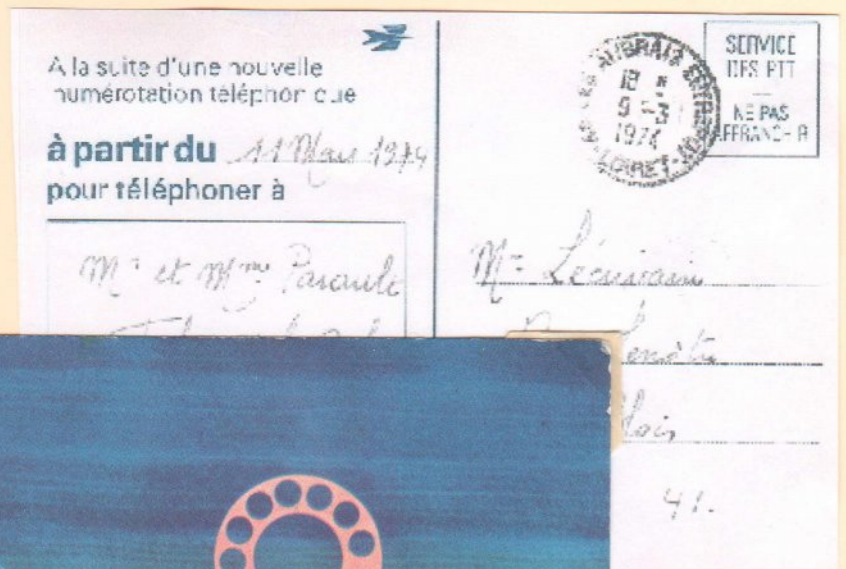 A la suite d'une nouvelle
numérotation téléphonique
à partir du 11 Mars 1974
pour téléphoner à
Mr et Mme
18
9-3
1974
LOIRET
SERVICE
DES PTT
NE PAS
AFFRANCHIR
Mr Lécrivain
41.